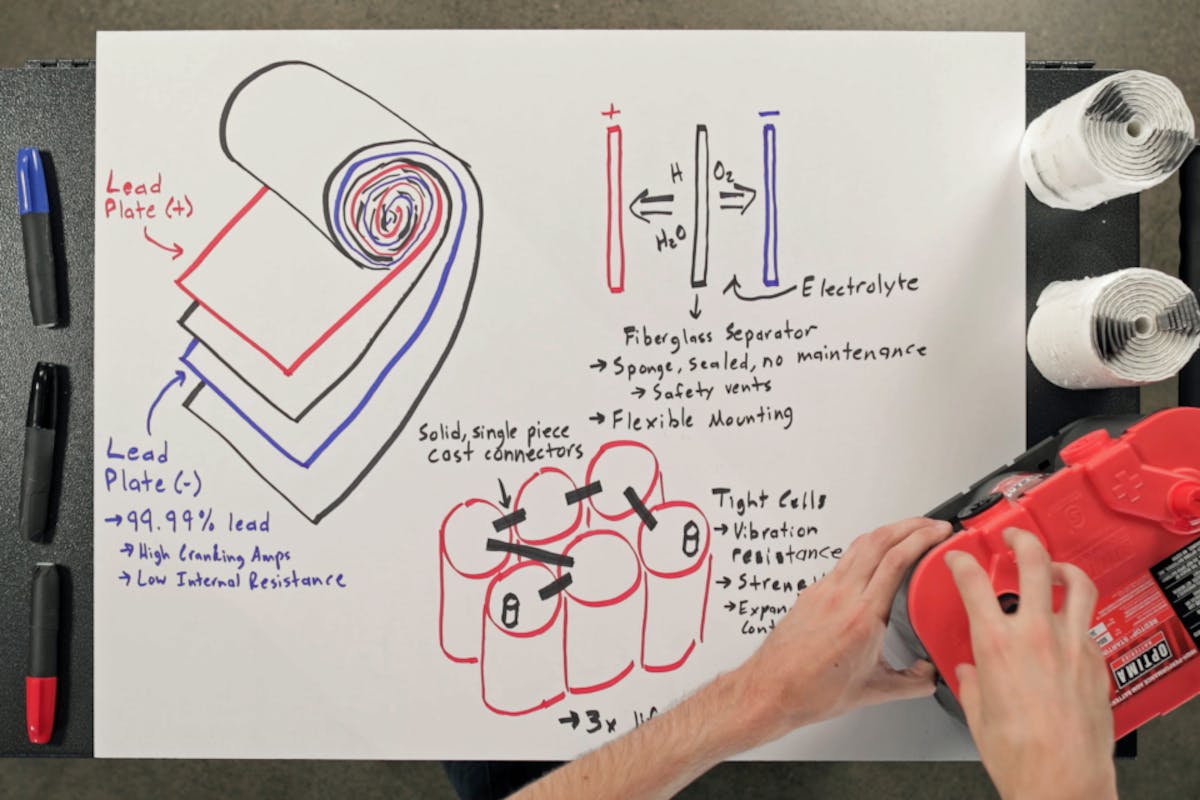 Lead
Plate (+)
Lead
Plate (-)
→ 99.99% lead
→ High Cranking Amps
→ Low Internal Resistance
+
−
H
O₂
H₂O
Electrolyte
Fiberglass Separator
→ Sponge, Sealed, no maintenance
→ Safety vents
→ Flexible Mounting
Solid, single piece
cast connectors
Tight Cells
→ Vibration
resistance
→ Stren
→ Expan
cont
→ 3x li
OPTIMA
BATTERIES
REDTOP STARTIN